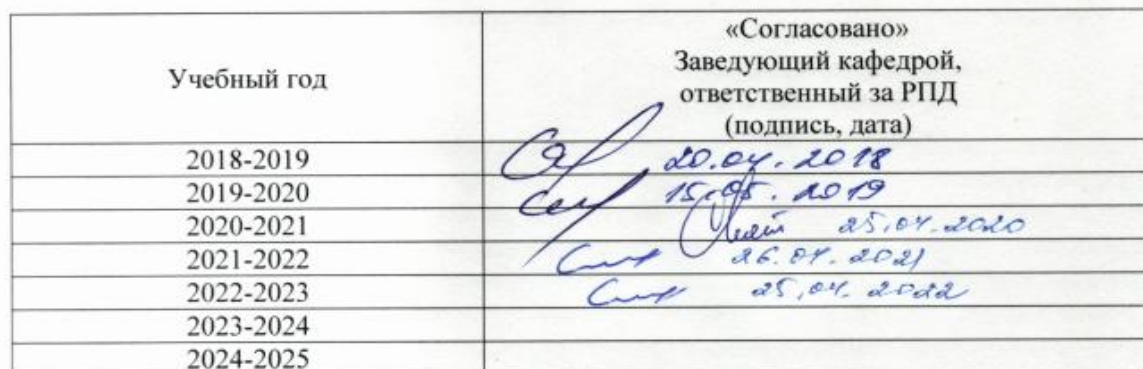 Учебный год
«Согласовано»
Заведующий кафедрой,
ответственный за РПД
(подпись, дата)
2018-2019 20.04.2018
2019-2020 15.05.2019
2020-2021 25.04.2020
2021-2022 26.04.2021
2022-2023 25.04.2022
2023-2024
2024-2025